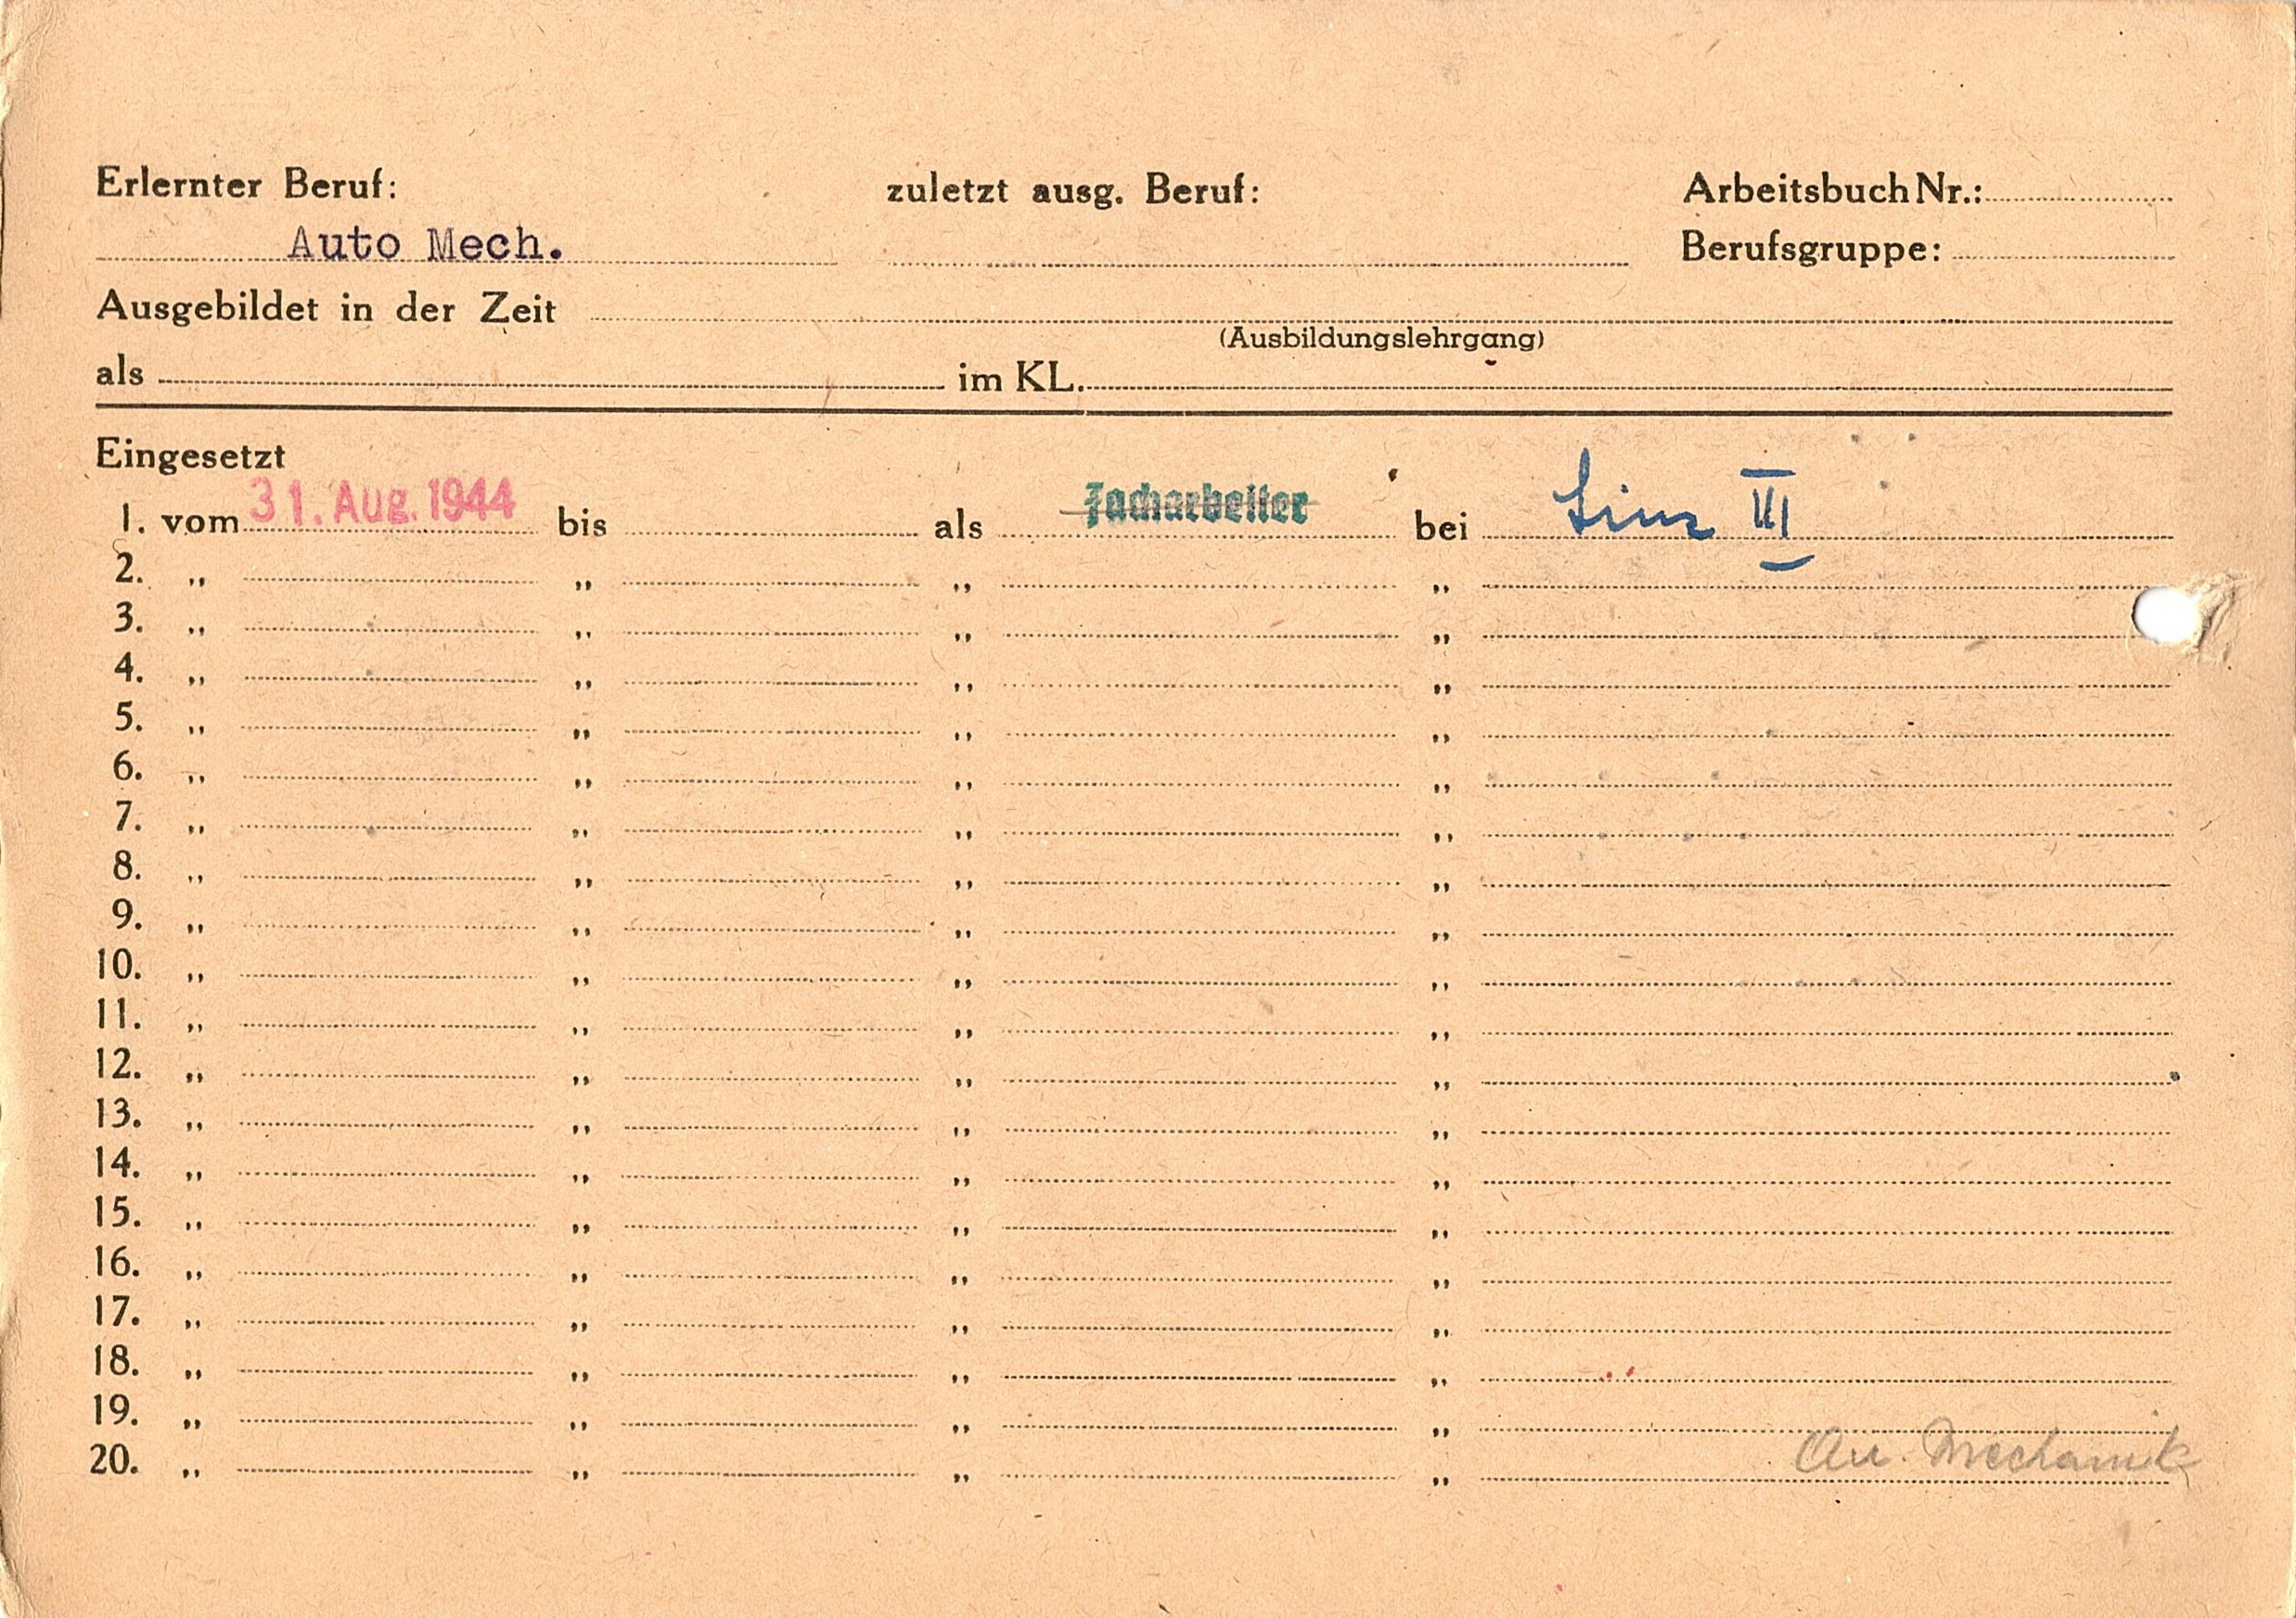 Erlernter Beruf: zuletzt ausg. Beruf: Arbeitsbuch Nr.:
Auto Mech. Berufsgruppe:
Ausgebildet in der Zeit
(Ausbildungslehrgang)
als im KL.
Eingesetzt
1. vom 31. Aug. 1944 bis als Facharbeiter bei Linz III
2. „ „ „ „
3. „ „ „ „
4. „ „ „ „
5. „ „ „ „
6. „ „ „ „
7. „ „ „ „
8. „ „ „ „
9. „ „ „ „
10. „ „ „ „
11. „ „ „ „
12. „ „ „ „
13. „ „ „ „
14. „ „ „ „
15. „ „ „ „
16. „ „ „ „
17. „ „ „ „
18. „ „ „ „
19. „ „ „ „
20. „ „ „ „ Mechanik